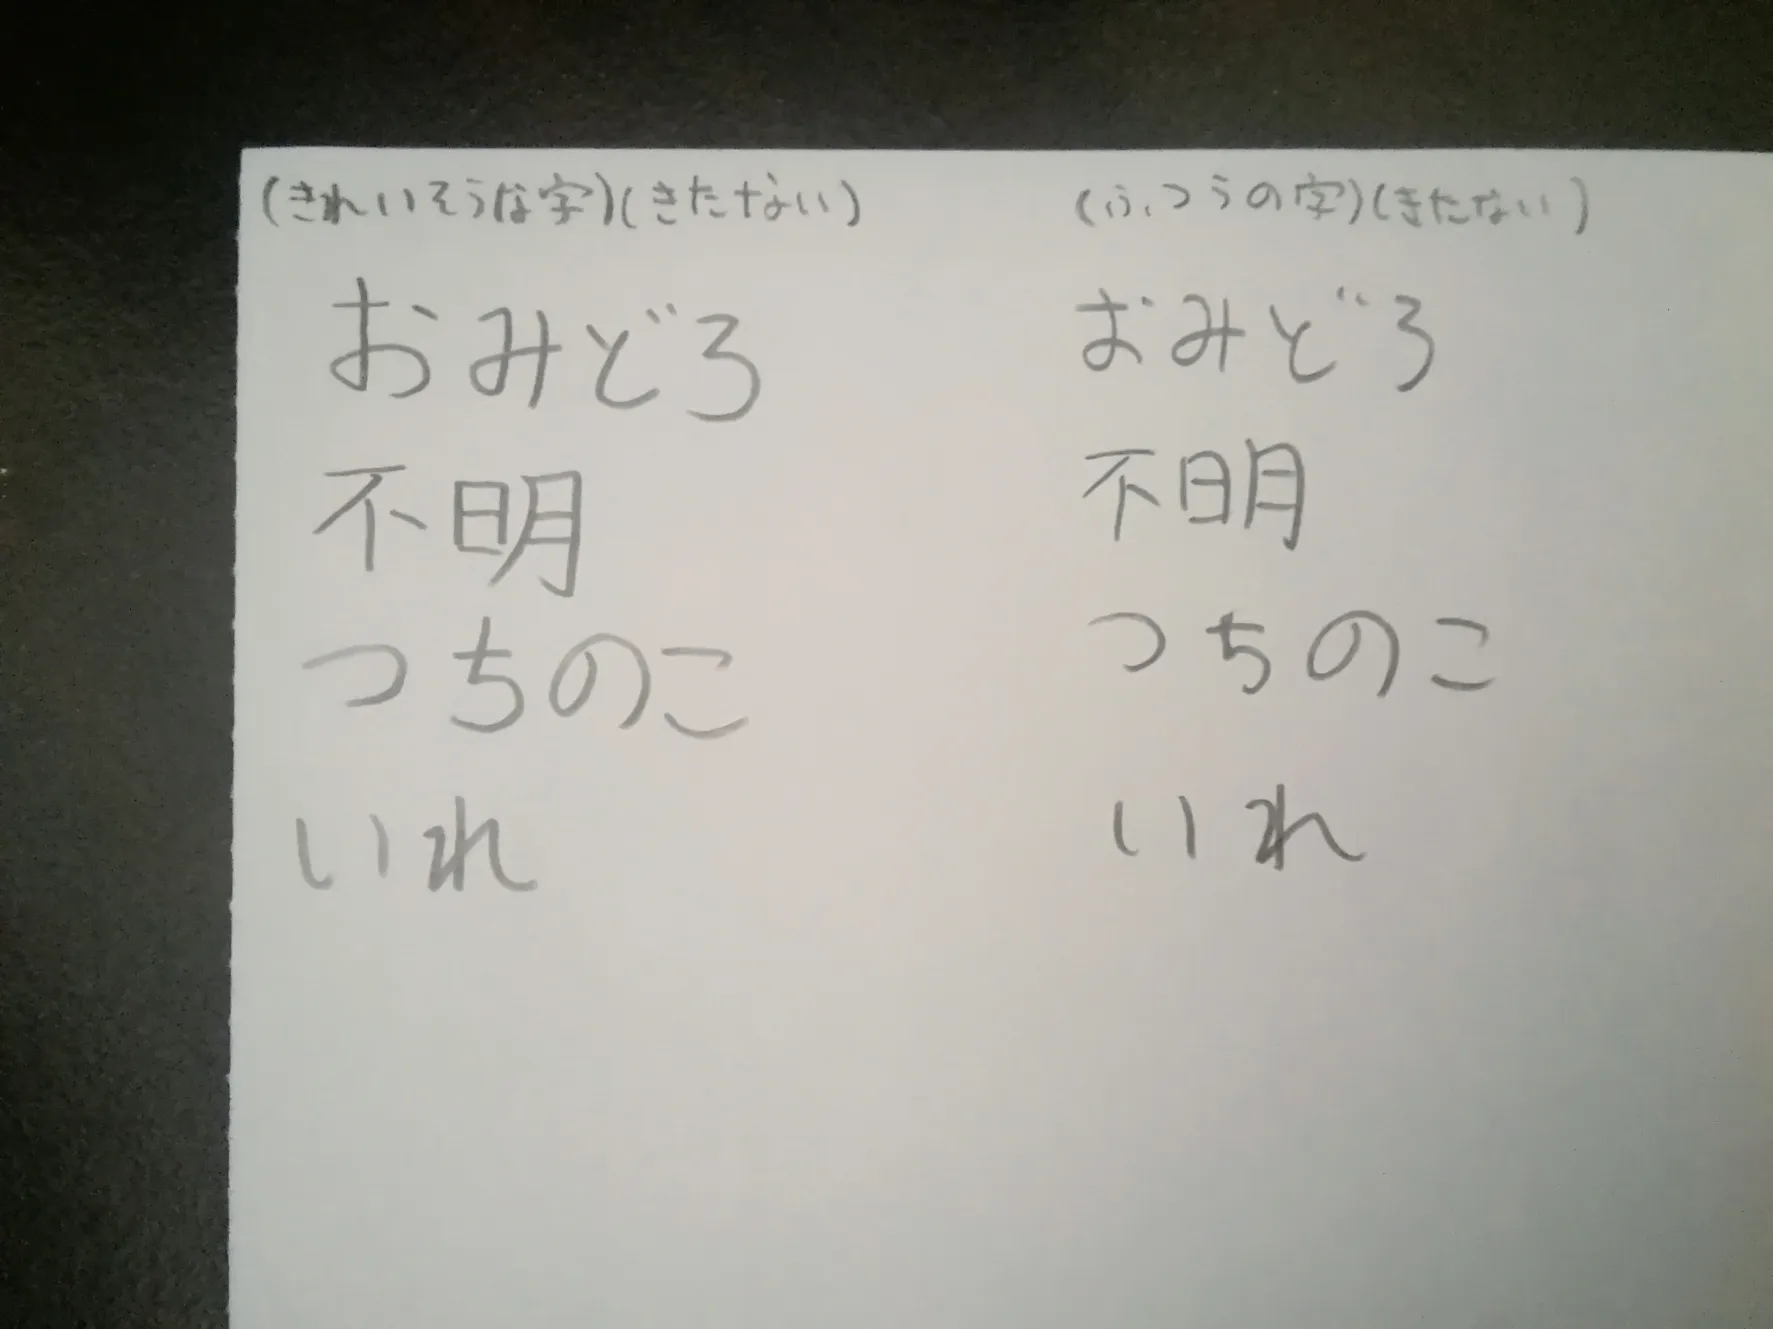 (きれいそうな字)(きたない)
おみどろ
不明
つちのこ
いれ
(ふつうの字)(きたない)
おみどろ
不明
つちのこ
いれ